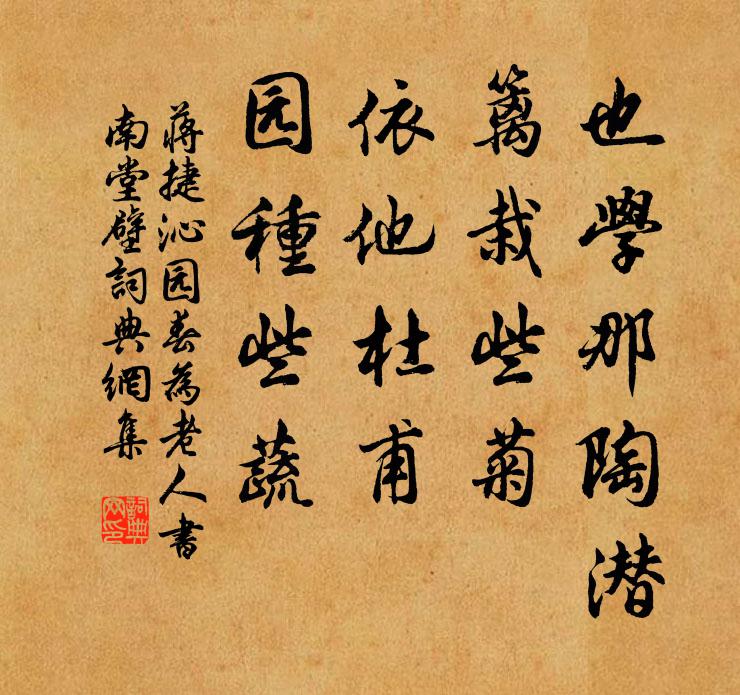 也學那陶潜
篱栽些菊
依他杜甫
园種些蔬
蒋捷沁园春為老人書
南堂壁詞典網集
詞典网印